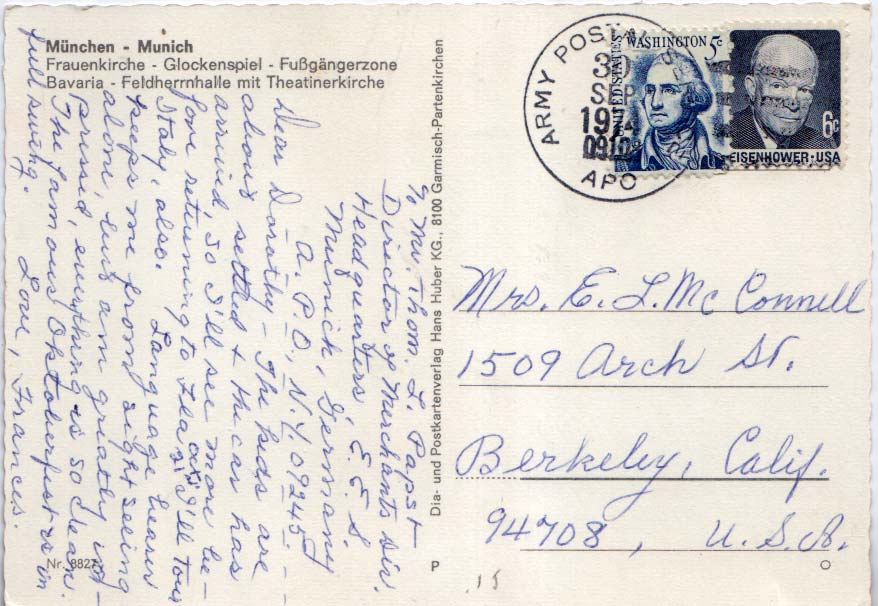 München - Munich
Frauenkirche - Glockenspiel - Fußgängerzone
Bavaria - Feldherrnhalle mit Theatinerkirche
c/o Mr. Thom. L. Papst
Director of Merchants Div.
Headquarters, E.E.S.
Munich, Germany
A.P.O., N.Y. 09245
Dear Dorothy - The kids are
about settled & the car has
arrived, so I'll see more be-
fore returning to Fla I'll tour
Italy, also. Language barrier
keeps me from sight seeing
alone, but am greatly im-
pressed, everything is so clean.
The famous is in
full swing. Love, Frances.
Nr. 8827
Dia- und Postkartenverlag Hans Huber KG., 8100 Garmisch-Partenkirchen
P
ARMY POSTAL
SEP
APO
UNITED STATES
WASHINGTON 5c
6c
EISENHOWER·USA
Mrs. E. L. McConnell
1509 Arch St.
Berkeley, Calif.
94708, U.S.A.
.15